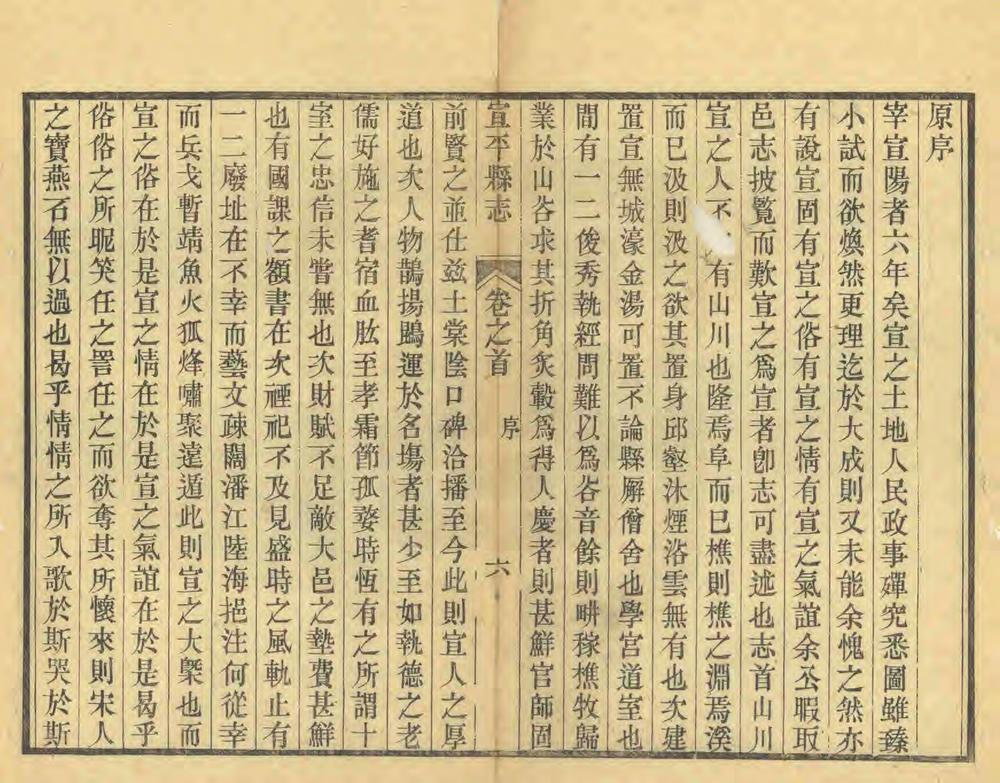 原序
宰宣陽者六年矣宣之土地人民政事殫究悉圖雖臻
小試而欲煥然更理迄於大成則又未能余愧之然亦
有說宣固有宣之俗有宣之情有宣之氣誼余公暇取
邑志披覧而歎宣之爲宣者卽志可盡述也志首山川
宣之人不有山川也隆焉阜而已樵則樵之淵焉溪
而已汲則汲之欲其置身邱壑沐煙浴雲無有也次建
置宣無城濠金湯可置不論縣廨僧舍也學宮道室也
間有一二俊秀執經問難以爲谷音餘則畊稼樵牧歸
業於山谷求其折角炙轂爲得人慶者則甚鮮官師固
宣平縣志
卷之首
序
六
前賢之並仕兹土棠陰口碑洽播至今此則宣人之厚
道也次人物鵲揚鵾運於名塲者甚少至如執德之老
儒好施之耆宿血肱至孝霜節孤嫠時恆有之所謂十
室之忠信未嘗無也次財賦不足敵大邑之墊費甚鮮
也有國課之額書在次禋祀不及見盛時之風軌止有
一二廢址在不幸而藝文疎闊潘江陸海挹注何從幸
而兵戈暫靖魚火狐烽嘯聚遠遁此則宣之大槩也而
宣之俗在於是宣之情在於是宣之氣誼在於是曷乎
俗俗之所昵笑任之詈任之而欲奪其所懷來則宋人
之寶燕石無以過也曷乎情情之所入歌於斯哭於斯